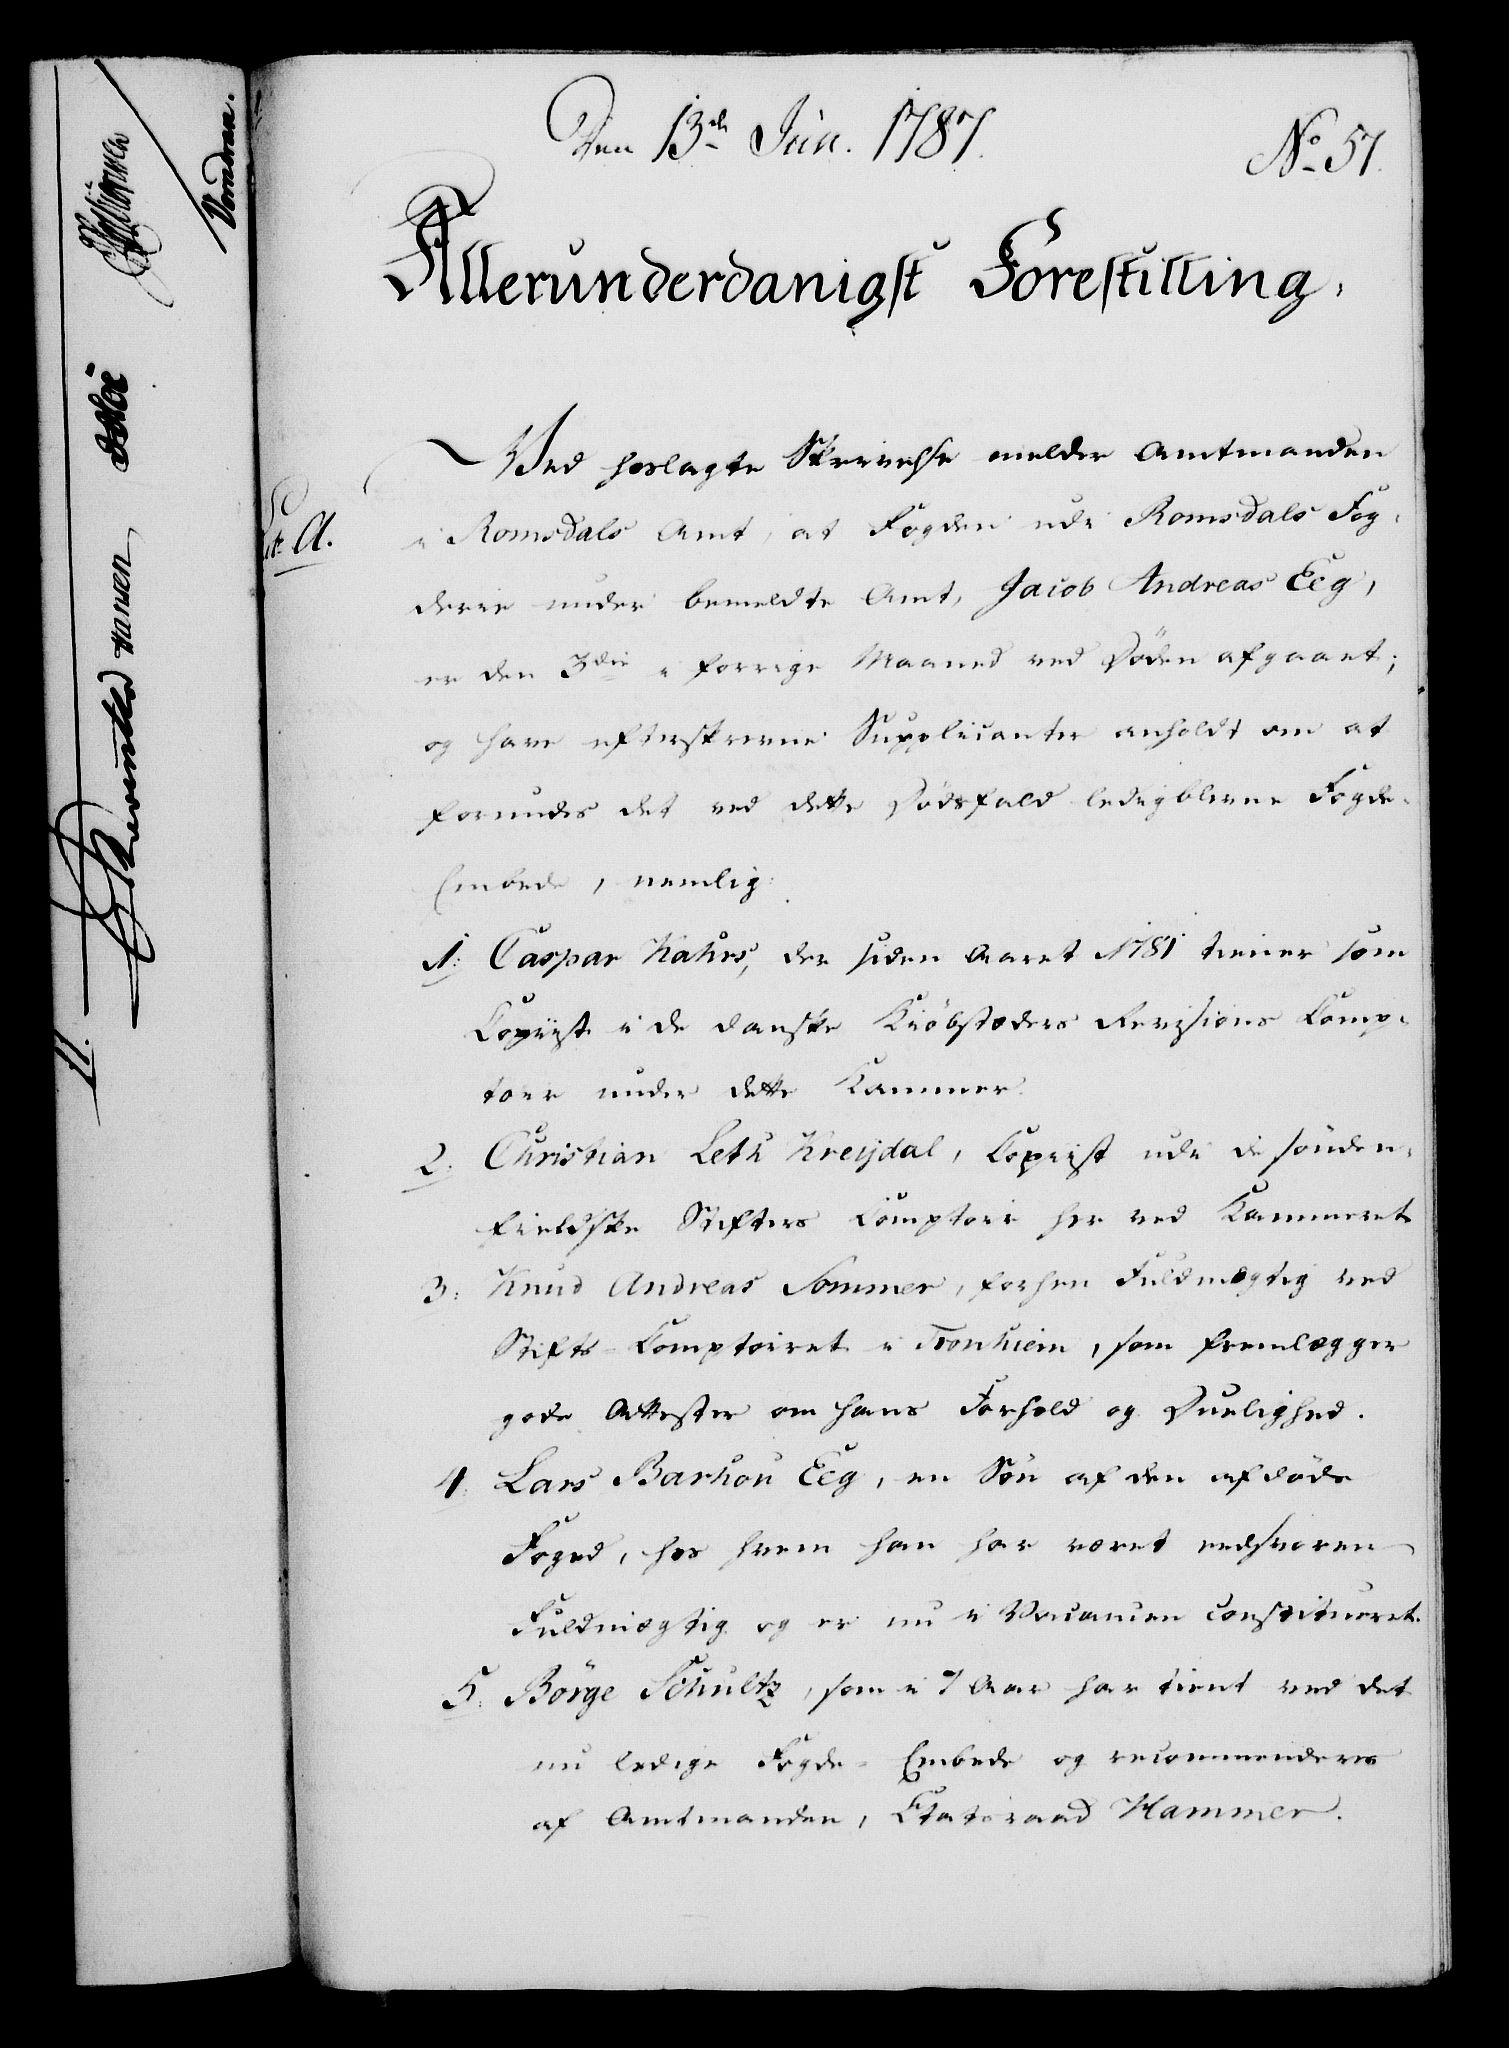 Den 13de Jun. 1787.
No 57.
Allerunderdanigst Forestilling.
Ved hoslagte Skrivelse melder Amtmanden
Litr A.
i Romsdals Amt, at Fogden udi Romsdals Fog-
derie under bemeldte Amt, Jacob Andreas Eeg,
er den 3die i forrige Maaned ved Døden afgaaet;
og have efterskrevne Supplicanter anholdt om at
forundes det ved dette Dødsfald ledigblevne Fogde-
Embede, nemlig:
1. Caspar Kahrs, der siden Aaret 1781 tiener som
Copiist i de danske Kiöbstæders Revisions Comp-
toir under dette Kammer.
2. Christian Leth Kreydal, Copiist udi de sönden-
fieldske Stifters Comptoir her ved Kammeret
3. Knud Andreas Sommer, forhen Fuldmægtig ved
Stifts-Comptoiret i Tronhiem, som fremlægger
gode Attester om hans Forhold og Duelighed.
4. Lars Barhou Eeg, en Sön af den afdöde
Foged, hos hvem han har været eedsvoren
Fuldmægtig og er nu i Vacancen constitueret.
5. Börge Schultz, som i 7 Aar har tient ved det
nu ledige Fogde-Embede og recommenderes
af Amtmanden, Etatsraad Hammer.